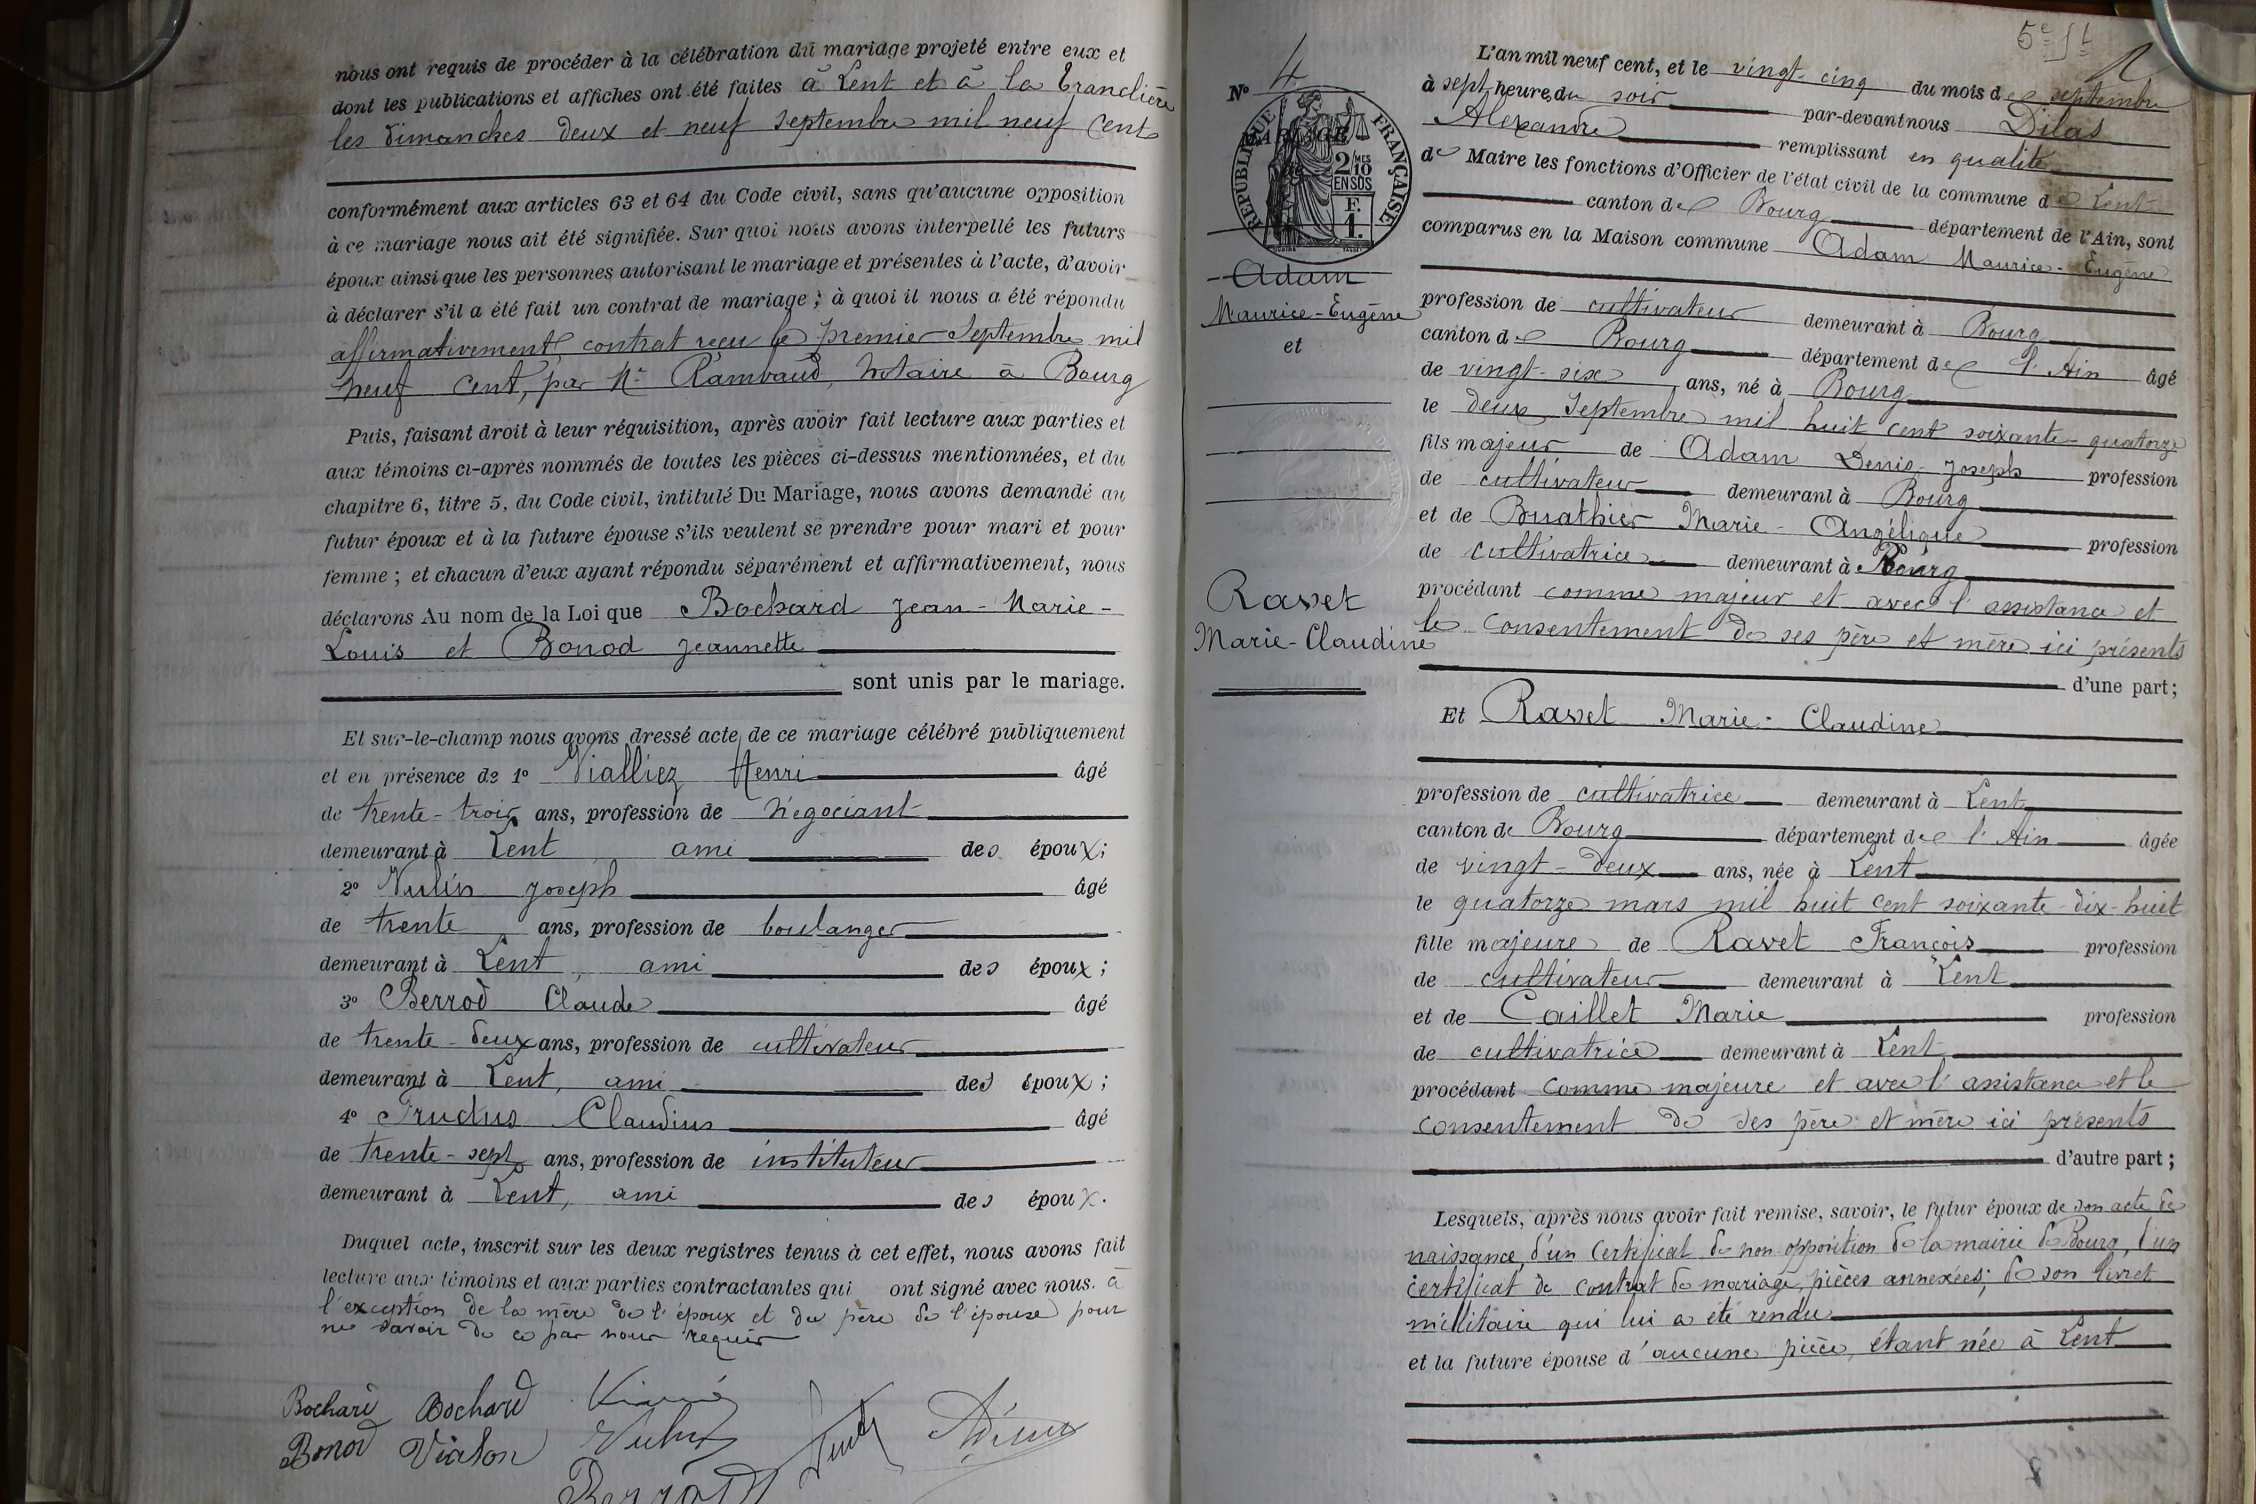 nous ont requis de procéder à la célébration du mariage projeté entre eux et
dont les publications et affiches ont été faites à Lent et à la Tranclière
les dimanches deux et neuf septembre mil neuf cent
conformément aux articles 63 et 64 du Code civil, sans qu'aucune opposition
à ce mariage nous ait été signifiée. Sur quoi nous avons interpellé les futurs
époux ainsi que les personnes autorisant le mariage et présentes à l'acte, d'avoir
à déclarer s'il a été fait un contrat de mariage ; à quoi il nous a été répondu
affirmativement, contrat reçu le premier Septembre mil
neuf cent, par Me Rambaud, notaire à Bourg
Puis, faisant droit à leur réquisition, après avoir fait lecture aux parties et
aux témoins ci-après nommés de toutes les pièces ci-dessus mentionnées, et du
chapitre 6, titre 5, du Code civil, intitulé Du Mariage, nous avons demandé au
futur époux et à la future épouse s'ils veulent se prendre pour mari et pour
femme ; et chacun d'eux ayant répondu séparément et affirmativement, nous
déclarons Au nom de la Loi que Bochard Jean-Marie-
Louis et Bonod Jeannette
sont unis par le mariage.
Et sur-le-champ nous avons dressé acte de ce mariage célébré publiquement
et en présence de 1° Vialliez Henri âgé
de trente-trois ans, profession de négociant
demeurant à Lent ami des époux ;
2° Vulin Joseph âgé
de trente ans, profession de boulanger
demeurant à Lent, ami des époux ;
3° Berrod Claude âgé
de trente-deux ans, profession de cultivateur
demeurant à Lent, ami des époux ;
4° Frudus Claudius âgé
de trente-sept ans, profession de instituteur
demeurant à Lent, ami des époux.
Duquel acte, inscrit sur les deux registres tenus à cet effet, nous avons fait
lecture aux témoins et aux parties contractantes qui ont signé avec nous. à
l'exception de la mère de l'époux et du père de l'épouse pour
ne savoir de ce par nous requis
Bochard Bochard
Bonod Vialon Vulin
Berrod
5e ft
N° 4
MARIAGE
RÉPUBLIQUE FRANÇAISE
2/10 MES
EN SUS
F.
1.
Adam
Maurice-Eugène
et
Ravet
Marie-Claudine
L'an mil neuf cent, et le vingt-cinq du mois de septembre
à sept heures du soir par-devant nous Dilas
Alexandre remplissant en qualité
de Maire les fonctions d'Officier de l'état civil de la commune de Lent
canton de Bourg département de l'Ain, sont
comparus en la Maison commune Adam Maurice-Eugène
profession de cultivateur demeurant à Bourg
canton de Bourg département de l'Ain âgé
de vingt-six ans, né à Bourg
le deux Septembre mil huit cent soixante-quatorze
fils majeur de Adam Denis Joseph profession
de cultivateur demeurant à Bourg
et de Buathier Marie-Angélique profession
de cultivatrice demeurant à Bourg
procédant comme majeur et avec l'assistance et
le consentement de ses père et mère ici présents
d'une part ;
Et Ravet Marie-Claudine
profession de cultivatrice demeurant à Lent
canton de Bourg département de l'Ain âgée
de vingt-deux ans, née à Lent
le quatorze mars mil huit cent soixante-dix-huit
fille majeure de Ravet François profession
de cultivateur demeurant à Lent
et de Caillet Marie profession
de cultivatrice demeurant à Lent
procédant comme majeure et avec l'assistance et le
consentement de ses père et mère ici présents
d'autre part ;
Lesquels, après nous avoir fait remise, savoir, le futur époux de son acte de
naissance, d'un certificat de non opposition de la mairie de Bourg, d'un
certificat de contrat de mariage, pièces annexées ; de son livret
militaire qui lui a été rendu
et la future épouse d'aucune pièce, étant née à Lent